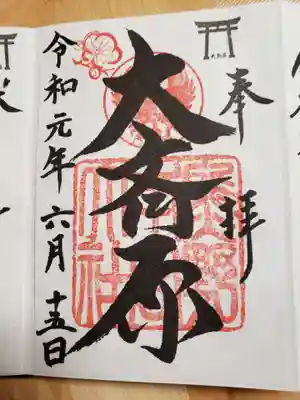 奉拝
大斎原
令和元年六月十五日